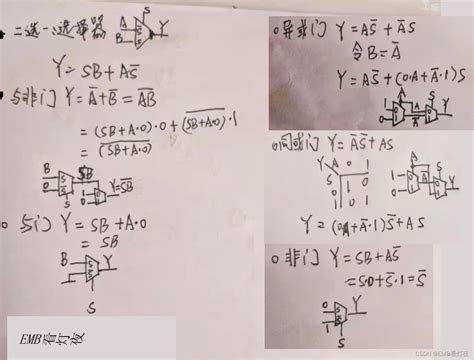 二选一选择器 A B S Y
Y = SB + AS̅
与非门 Y = A̅ + B̅ = A̅B̅
= (SB+A·0)·0 + (SB+A·0)·1
= (SB+A·0)
B 0 S SB 1 0 Y=SB
○ 与门 Y = SB + A·0
= SB
B S Y
S
EMB看灯板
○ 异或门 Y = AS̅ + A̅S
令 B = A̅
Y = AS̅ + (0·A + A̅·1)S
○ 同或门 Y = A̅S̅ + AS
Y = (0A + A̅·1)S̅ + AS
○ 非门 Y = SB + AS̅
= S·0 + S̅·1 = S̅
0 1 Y
S
CSDN @EMB看灯板